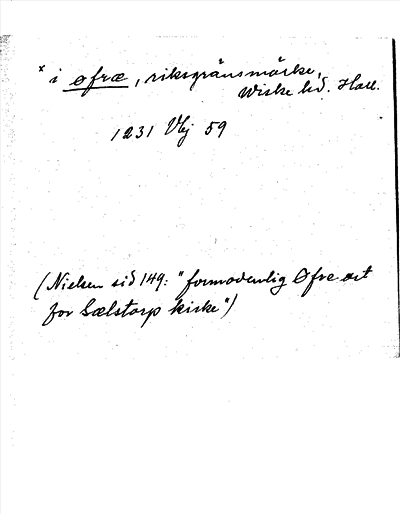 * i øfræ, riksgränsmärke,
Wiske hd. Hall.
1231 Vbj 59
(Nielsen sid 149: "formodenlig Øfre øst
for Sælstorp kirke")